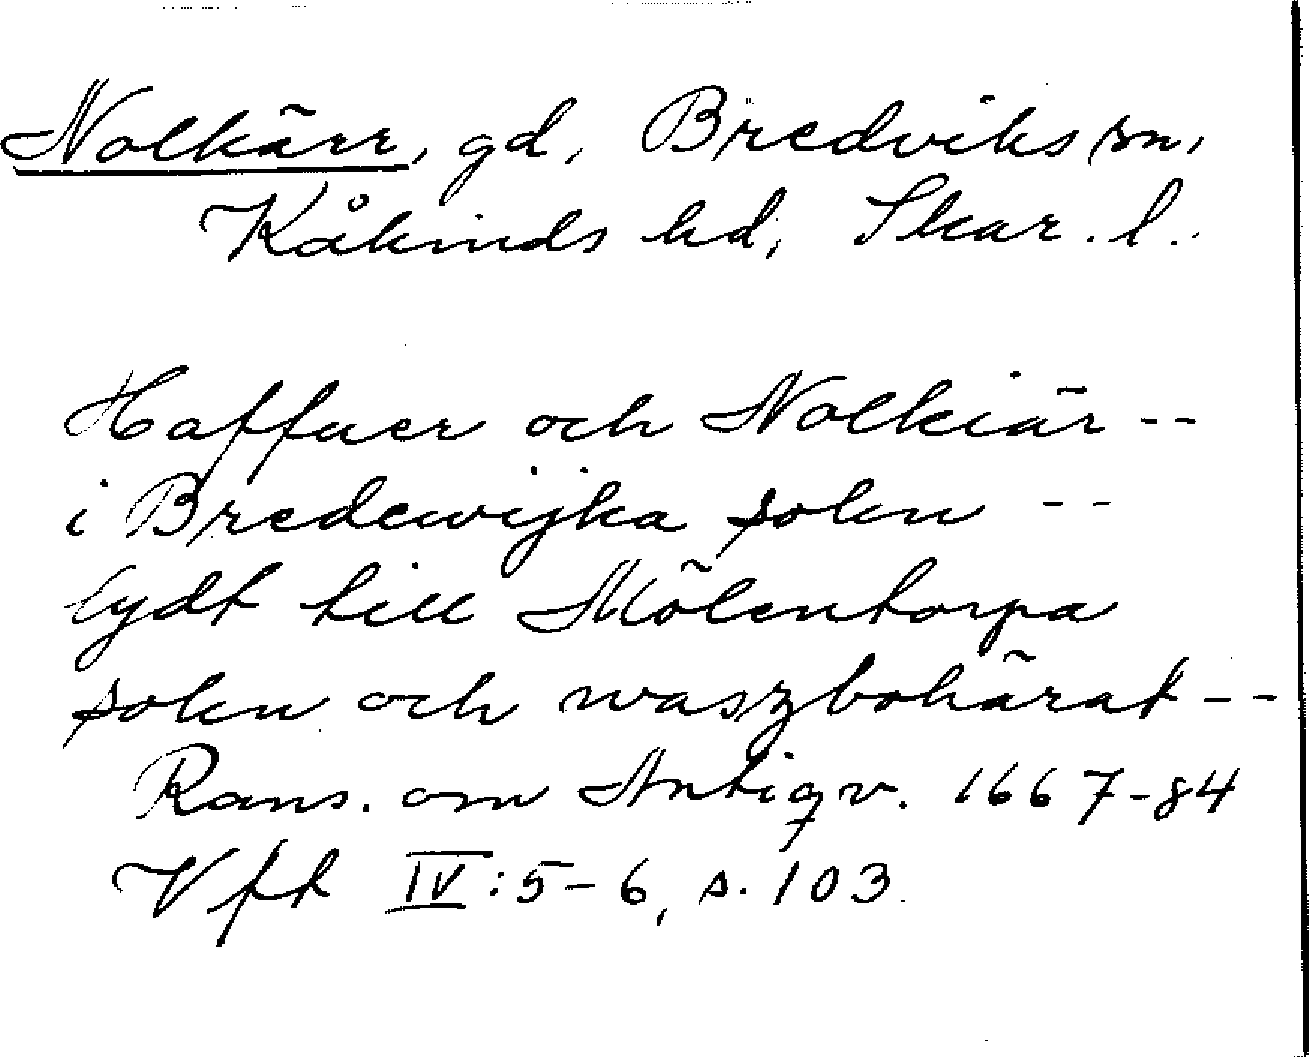 Nolkärr, gd, Bredviks sn,
Kåkinds hd, Skar. l.
Haffuer och Nolkiär --
i Bredewijka sokn --
lydt till Mölentorpa
sokn och waszbohärat --
Rans. om Antiqv. 1667-84
Vft IV:5-6, s. 103.